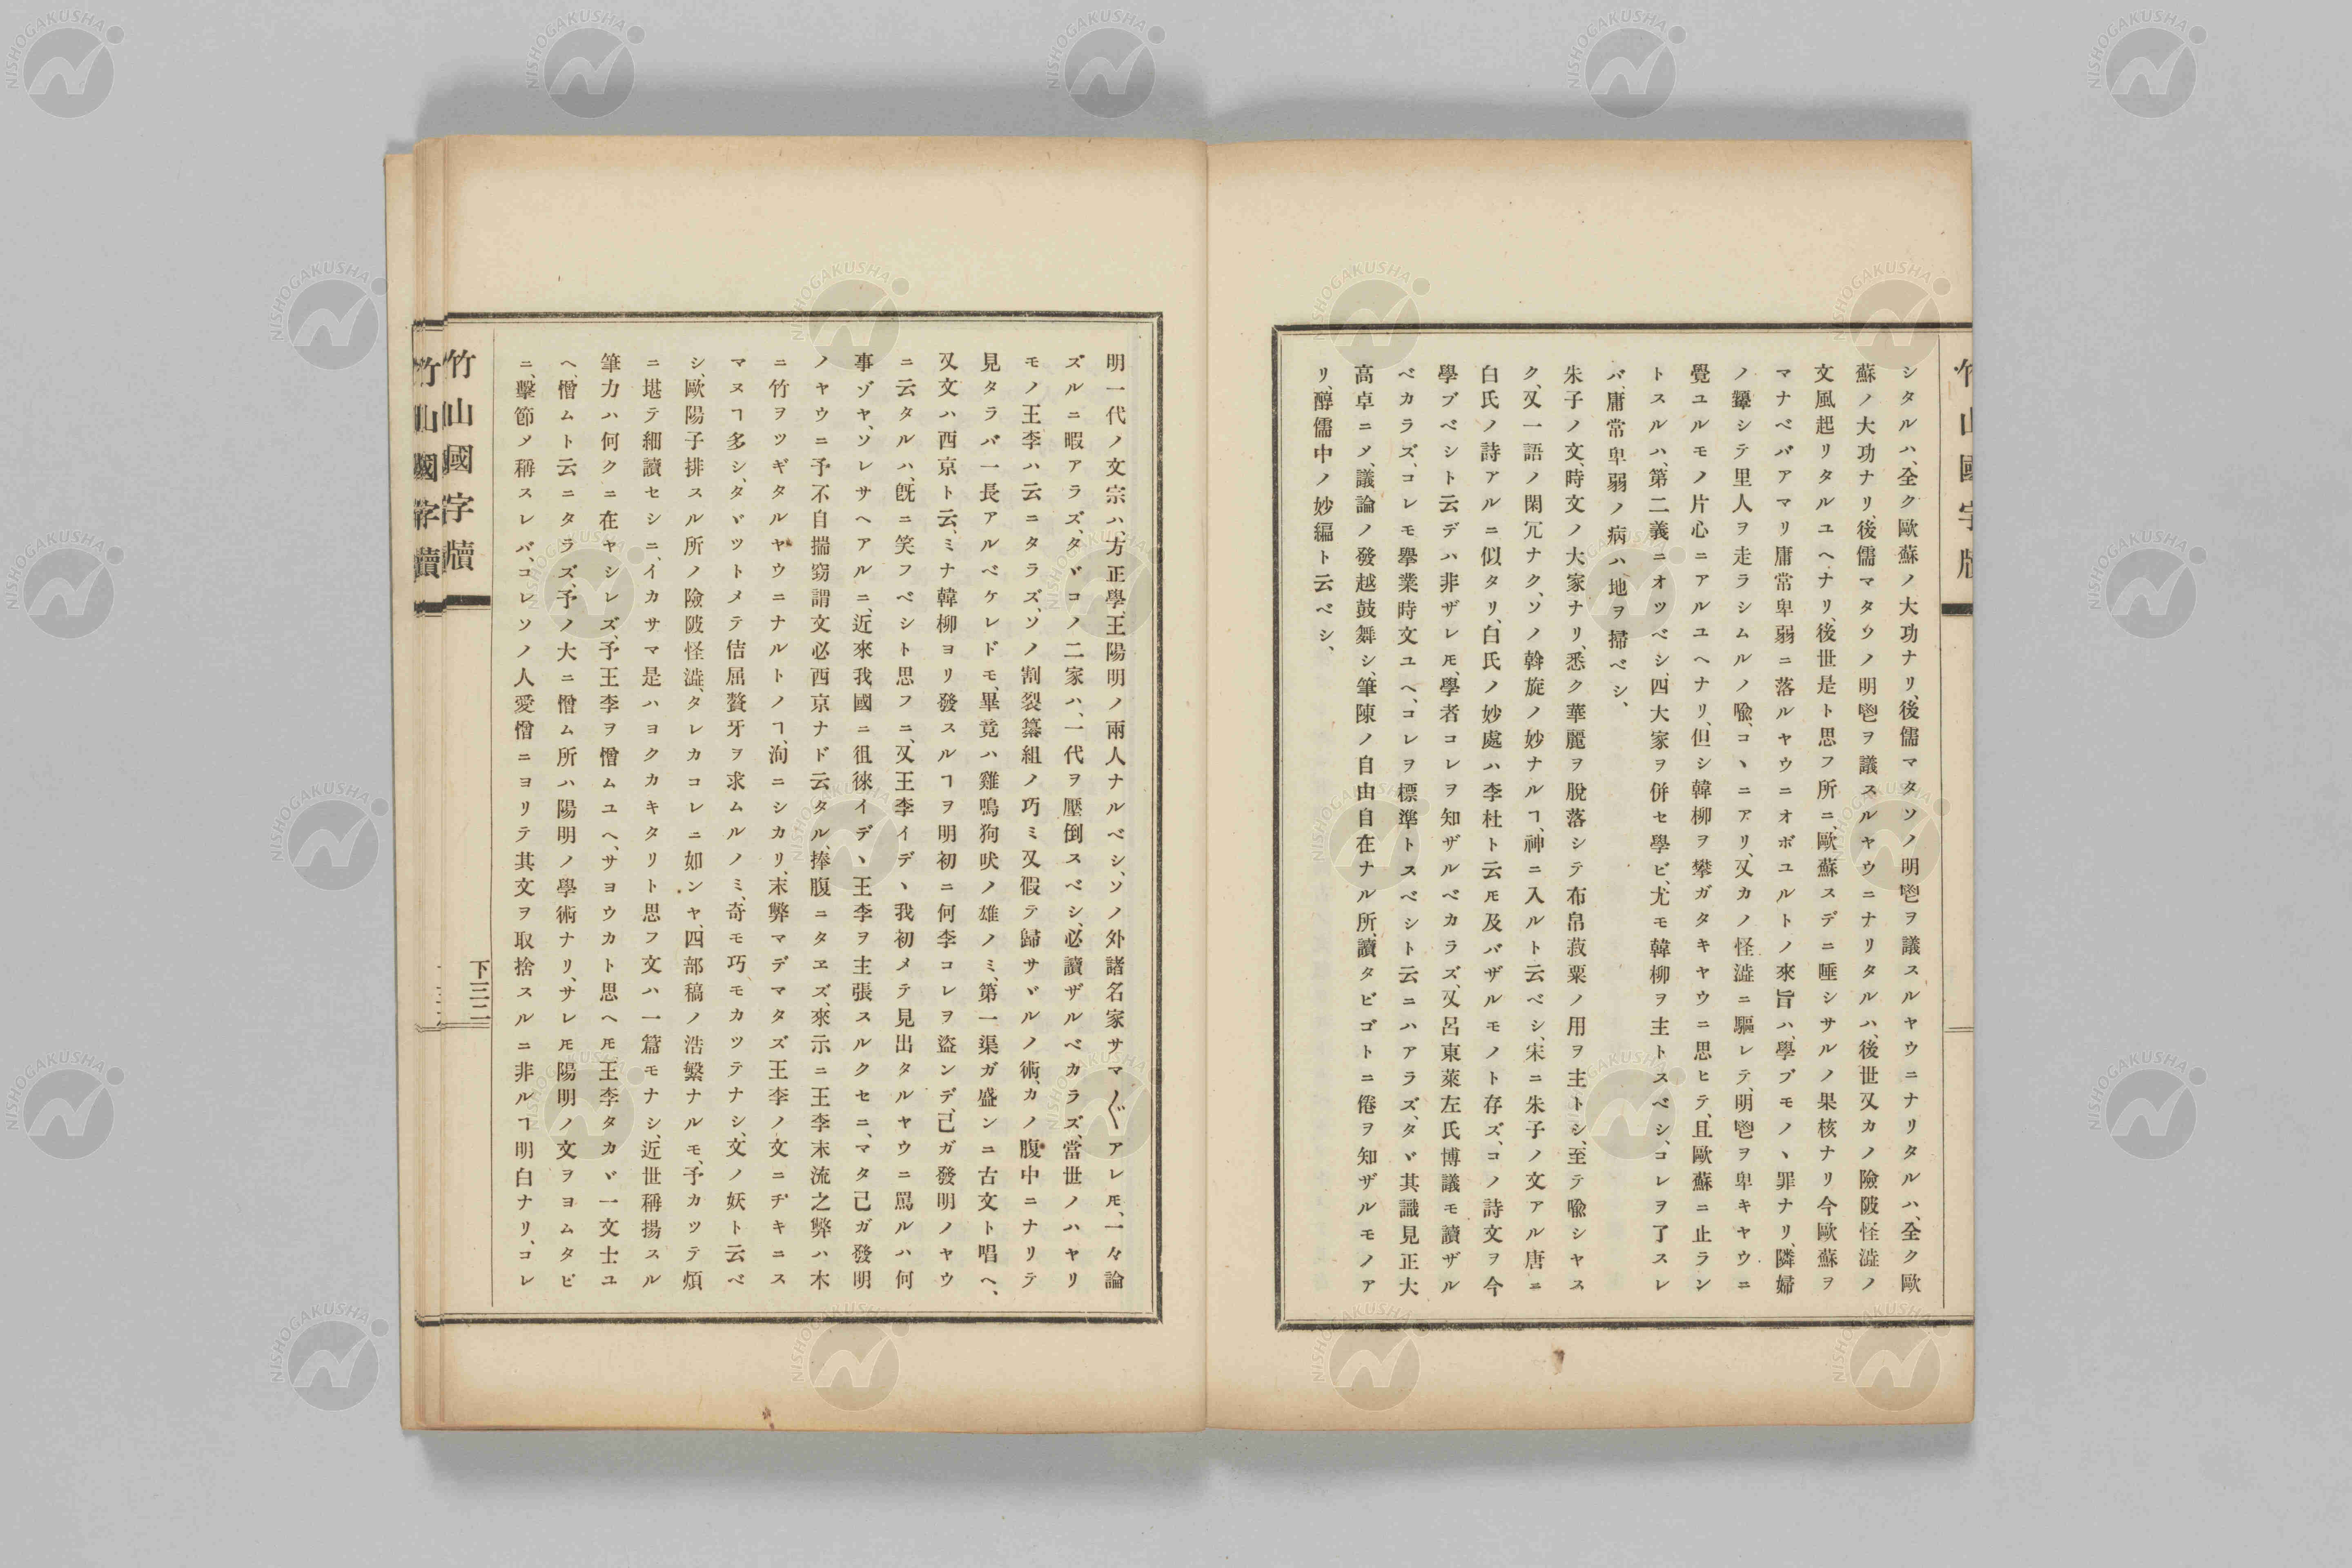 竹山國字牘
シタルハ、全ク歐蘇ノ大功ナリ、後儒マタソノ明鬯ヲ議スルヤウニナリタルハ、全ク歐
蘇ノ大功ナリ、後儒マタソノ明鬯ヲ議スルヤウニナリタルハ、後世又カノ險陂怪澁ノ
文風起リタルユヘナリ、後世是ト思フ所ニ、歐蘇スデニ唾シサルノ果核ナリ今歐蘇ヲ
マナベバアマリ庸常卑弱ニ落ルヤウニオボユルトノ來旨ハ、學ブモノヽ罪ナリ、隣婦
ノ顰シテ里人ヲ走ラシムルノ喩、コヽニアリ、又カノ怪澁ニ驅レテ、明鬯ヲ卑キヤウニ
覺ユルモノ片心ニアルユヘナリ、但シ韓柳ヲ攀ガタキヤウニ思ヒテ、且歐蘇ニ止ラン
トスルハ、第二義ニオツベシ、四大家ヲ併セ學ビ、尤モ韓柳ヲ主トスベシ、コレヲ了スレ
バ、庸常卑弱ノ病ハ、地ヲ掃ベシ、
朱子ノ文、時文ノ大家ナリ、悉ク華麗ヲ脫落シテ布帛菽粟ノ用ヲ主トシ、至テ喩シヤス
ク、又一語ノ閑冗ナク、ソノ斡旋ノ妙ナルヿ、神ニ入ルト云ベシ、宋ニ朱子ノ文アル唐ニ
白氏ノ詩アルニ似タリ、白氏ノ妙處ハ李杜ト云𪜈及バザルモノト存ズ、コノ詩文ヲ今
學ブベシト云デハ非ザレ𪜈、學者コレヲ知ザルベカラズ、又呂東萊左氏博議モ讀ザル
ベカラズ、コレモ擧業時文ユヘ、コレヲ標準トスベシト云ニハアラズ、タヾ其識見正大
高卓ニメ、議論ノ發越鼓舞シ、筆陳ノ自由自在ナル所、讀タビゴトニ倦ヲ知ザルモノア
リ、醇儒中ノ妙編ト云ベシ、
明一代ノ文宗ハ、方正學、王陽明ノ兩人ナルベシ、ソノ外諸名家サマ〴〵アレ𪜈、一々論
ズルニ暇アラズ、タヾコノ二家ハ、一代ヲ壓倒スベシ、必讀ザルベカラズ、當世ノハヤリ
モノ王李ハ云ニタラズ、ソノ割裂纂組ノ巧ミ又假テ歸サヾルノ術、カノ腹中ニナリテ
見タラバ一長アルベケレドモ、畢竟ハ雞鳴狗吠ノ雄ノミ、第一渠ガ盛ンニ古文ト唱ヘ、
又文ハ西京ト云、ミナ韓柳ヨリ發スルヿヲ明初ニ何李コレヲ盜ンデ、己ガ發明ノヤウ
ニ云タルハ、旣ニ笑フベシト思フニ、又王李イデヽ我初メテ見出タルヤウニ罵ルハ何
事ゾヤ、ソレサヘアルニ、近來我國ニ徂徠イデヽ王李ヲ主張スルクセニ、マタ己ガ發明
ノヤウニ予不自揣窃謂文必西京ナド云タル、捧腹ニタヱズ、來示ニ王李末流之弊ハ木
ニ竹ヲツギタルヤウニナルトノヿ、洵ニシカリ、末弊マデマタズ王李ノ文ニヂキニス
マヌヿ多シ、タヾツトメテ佶屈聱牙ヲ求ムルノミ、奇モ巧モカツテナシ、文ノ妖ト云ベ
シ、歐陽子排スル所ノ險陂怪澁、タレカコレニ如ンヤ、四部稿ノ浩繁ナルモ、予カツテ煩
ニ堪テ細讀セシニ、イカサマ是ハヨクカキタリト思フ文ハ一篇モナシ、近世稱揚スル
筆力ハ何クニ在ヤシレズ、予王李ヲ憎ムユヘ、サヨウカト思ヘ𪜈王李タカヾ一文士ユ
ヘ、憎ムト云ニタラズ、予ノ大ニ憎ム所ハ陽明ノ學術ナリ、サレ𪜈陽明ノ文ヲヨムタビ
ニ、擊節メ稱スレバ、コレソノ人愛憎ニヨリテ其文ヲ取捨スルニ非ルヿ明白ナリ、コレ
竹山國字牘
下三二
竹山國字牘